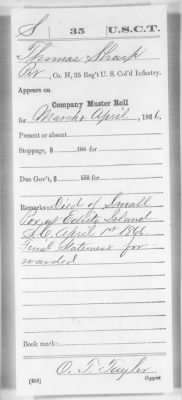 S 35 U.S.C.T.
Thomas Sharp
Pvt, Co. H, 35 Reg't U. S. Col'd Infantry.
Appears on
Company Muster Roll
for March & April, 1866.
Present or absent
Stoppage, $ 100 for
Due Gov't, $ 100 for
Remarks: Died of Small
Pox at Edisto Island
S.C. April 1st 1866.
Final Statement for-
warded
Book mark:
O. T. Taylor
(858) Copyist.